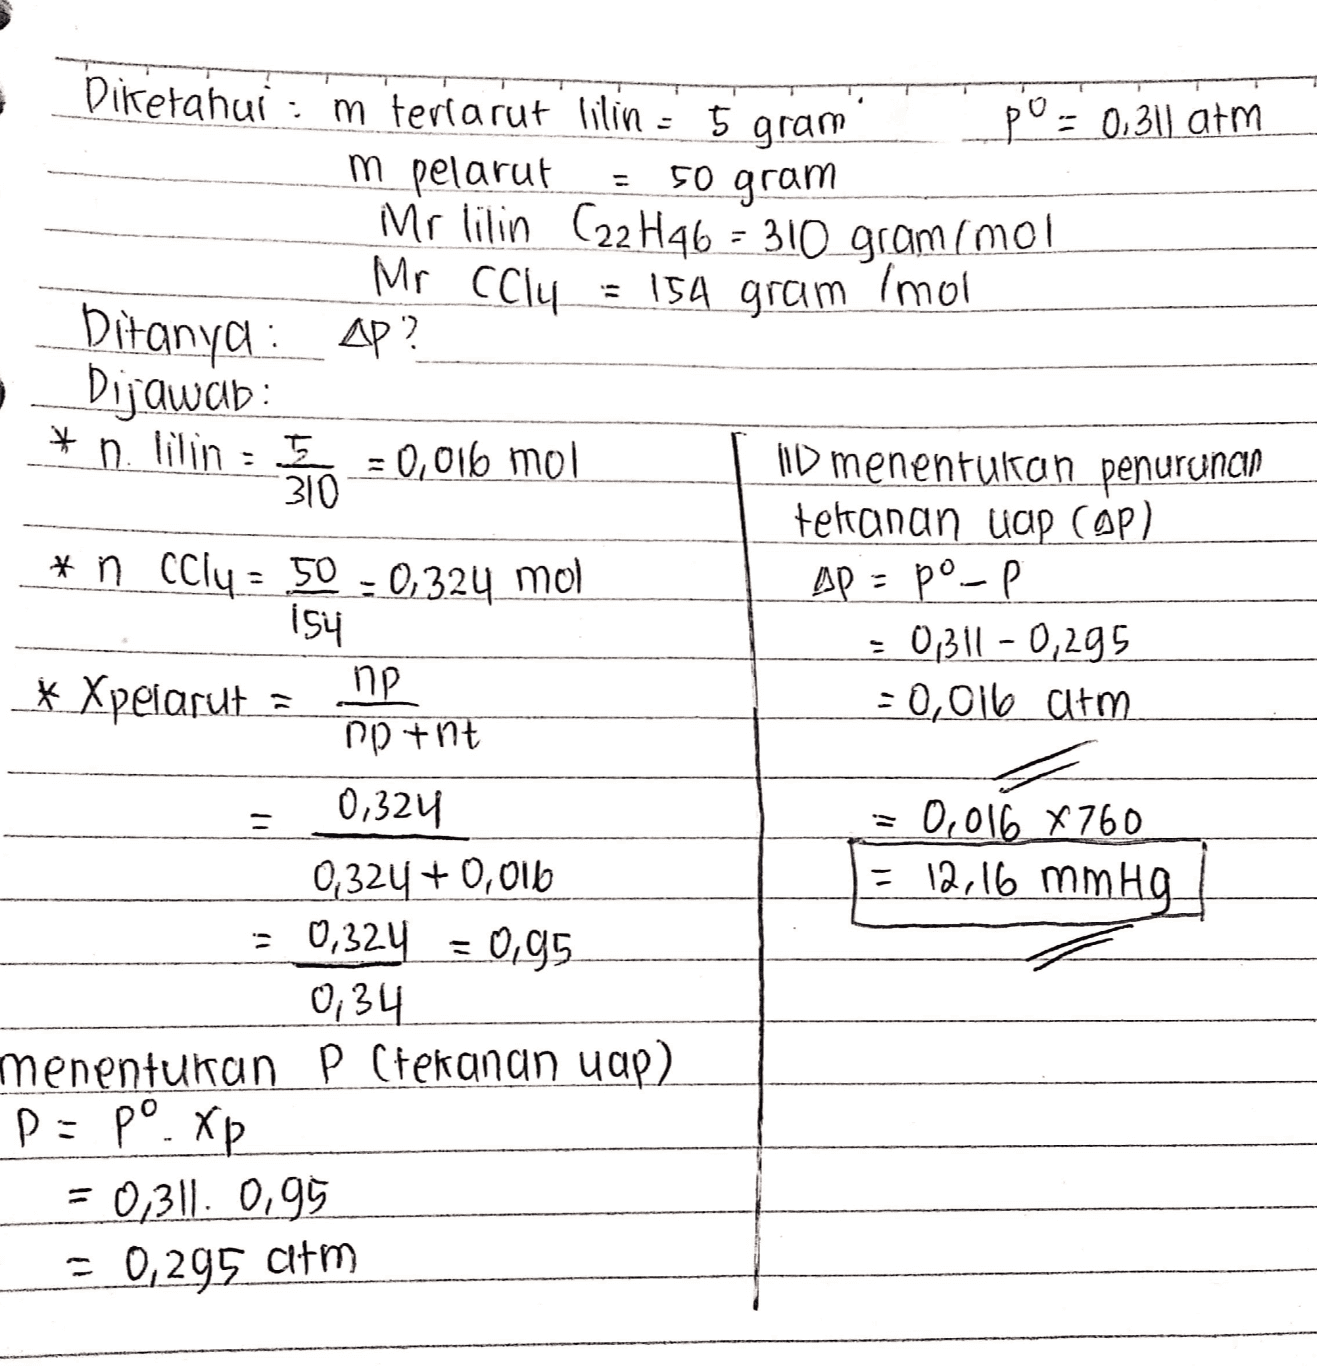 Diketahui : m terlarut lilin = 5 gram P⁰ = 0,311 atm
m pelarut = 50 gram
Mr lilin C22H46 = 310 gram/mol
Mr CCl4 = 154 gram /mol
Ditanya : ΔP ?
Dijawab :
* n. lilin = 5/310 = 0,016 mol
* n CCl4 = 50/154 = 0,324 mol
* Xpelarut = np/np + nt
= 0,324/0,324 + 0,016
= 0,324/0,34 = 0,95
menentukan P (tekanan uap)
P = P⁰. Xp
= 0,311. 0,95
= 0,295 atm
menentukan penurunan
tekanan uap (ΔP)
ΔP = P⁰ - P
= 0,311 - 0,295
= 0,016 atm
= 0,016 x 760
= 12,16 mmHg